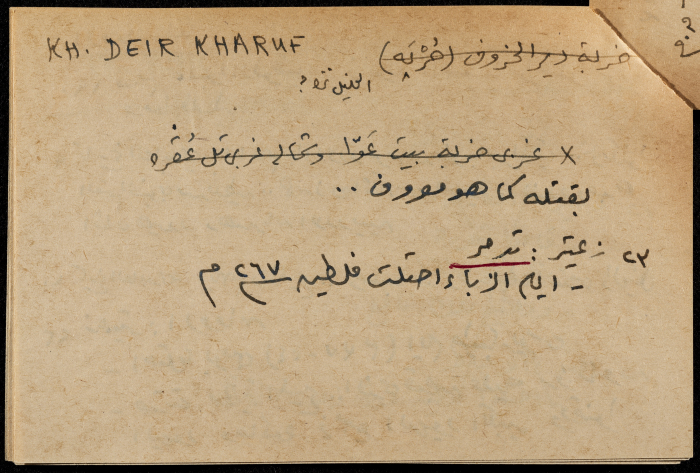 KH. DEIR KHARUF
خربة دير الخروف (خُرْبَه)
الخليل
× غربي خربة بيت عَوّا وشمالي غربي تل عُقره
بقتله كما هو معروف ..
٢٣ زعيتر : تدمر
- ايام الزباء احتلت فلسطين سـ ٢٦٧ م